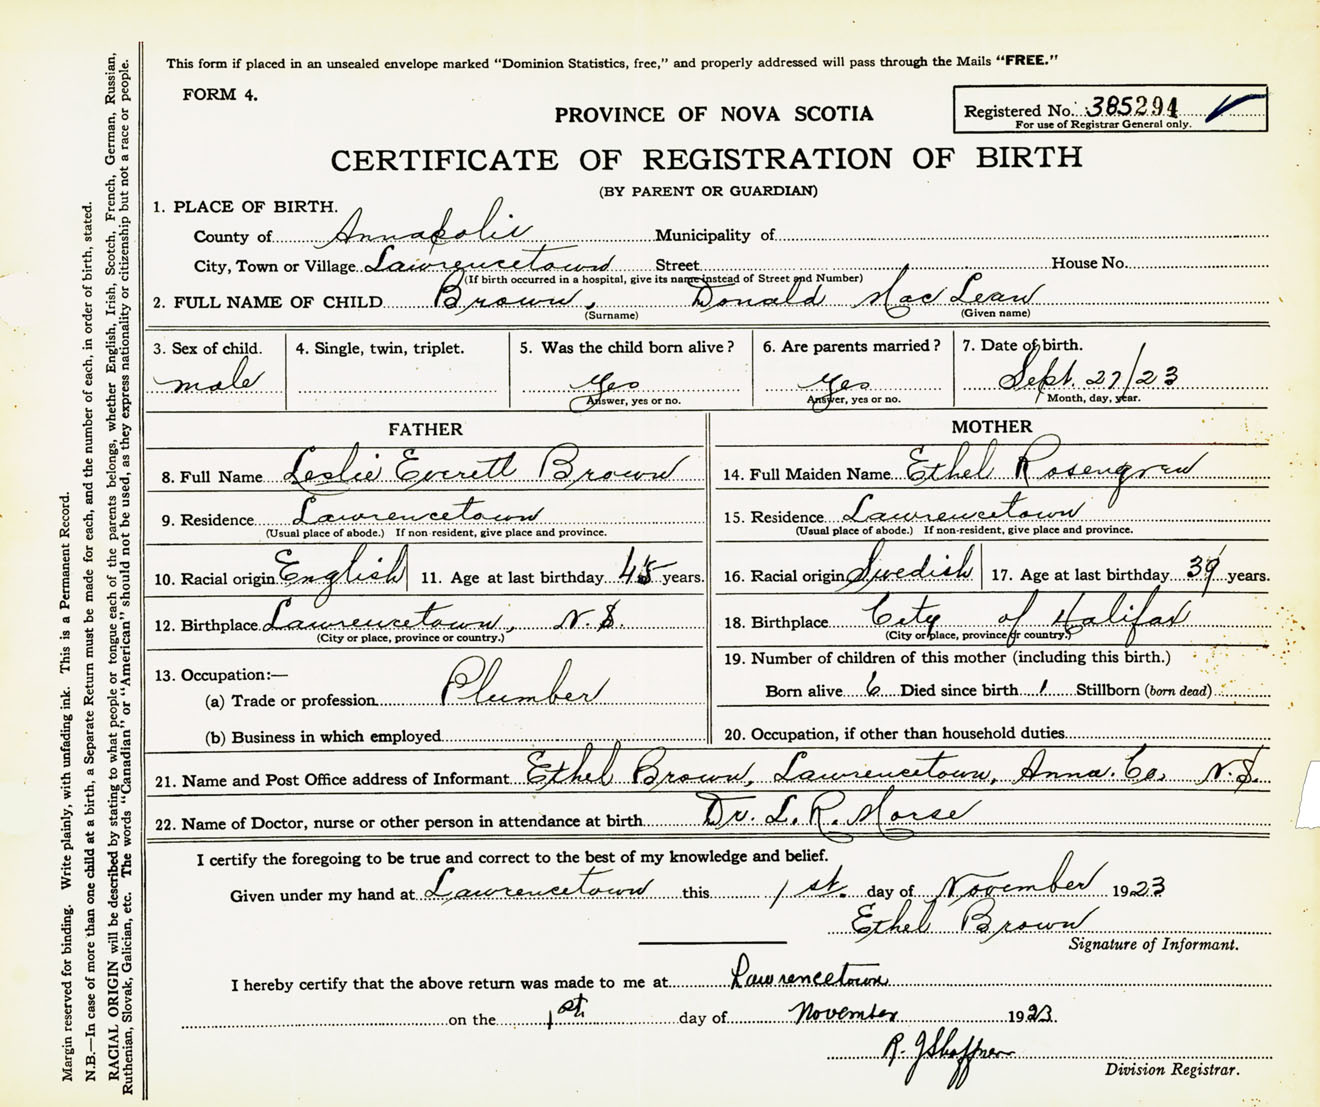 This form if placed in an unsealed envelope marked "Dominion Statistics, free," and properly addressed will pass through the Mails "FREE."
FORM 4.
PROVINCE OF NOVA SCOTIA
Registered No. 385294
For use of Registrar General only.
CERTIFICATE OF REGISTRATION OF BIRTH
(BY PARENT OR GUARDIAN)
1. PLACE OF BIRTH.
County of Annapolis Municipality of
City, Town or Village Lawrencetown Street House No.
(If birth occurred in a hospital, give its name instead of Street and Number)
2. FULL NAME OF CHILD Brown, Donald MacLean
(Surname) (Given name)
3. Sex of child. 4. Single, twin, triplet. 5. Was the child born alive? 6. Are parents married? 7. Date of birth.
male Yes Yes Sept. 27/23
Answer, yes or no. Answer, yes or no. Month, day, year.
FATHER MOTHER
8. Full Name Leslie Everett Brown
14. Full Maiden Name Ethel Rosengren
9. Residence Lawrencetown
(Usual place of abode.) If non-resident, give place and province.
15. Residence Lawrencetown
(Usual place of abode.) If non-resident, give place and province.
10. Racial origin English 11. Age at last birthday 45 years.
16. Racial origin Swedish 17. Age at last birthday 39 years.
12. Birthplace Lawrencetown, N.S.
(City or place, province or country.)
18. Birthplace City of Halifax
(City or place, province or country.)
13. Occupation:—
(a) Trade or profession Plumber
(b) Business in which employed
19. Number of children of this mother (including this birth.)
Born alive 6 Died since birth 1 Stillborn (born dead)
20. Occupation, if other than household duties
21. Name and Post Office address of Informant Ethel Brown, Lawrencetown, Anna. Co. N.S.
22. Name of Doctor, nurse or other person in attendance at birth Dr. L. R. Morse
I certify the foregoing to be true and correct to the best of my knowledge and belief.
Given under my hand at Lawrencetown this 1st. day of November 1923
Ethel Brown
Signature of Informant.
I hereby certify that the above return was made to me at Lawrencetown
on the 1st day of November 1923.
R. J Shaffner
Division Registrar.
Margin reserved for binding. Write plainly, with unfading ink. This is a Permanent Record.
N.B.—In case of more than one child at a birth, a Separate Return must be made for each, and the number of each, in order of birth, stated.
RACIAL ORIGIN will be described by stating to what people or tongue each of the parents belongs, whether English, Irish, Scotch, French, German, Russian,
Ruthenian, Slovak, Galician, etc. The words "Canadian" or "American" should not be used, as they express nationality or citizenship but not a race or people.